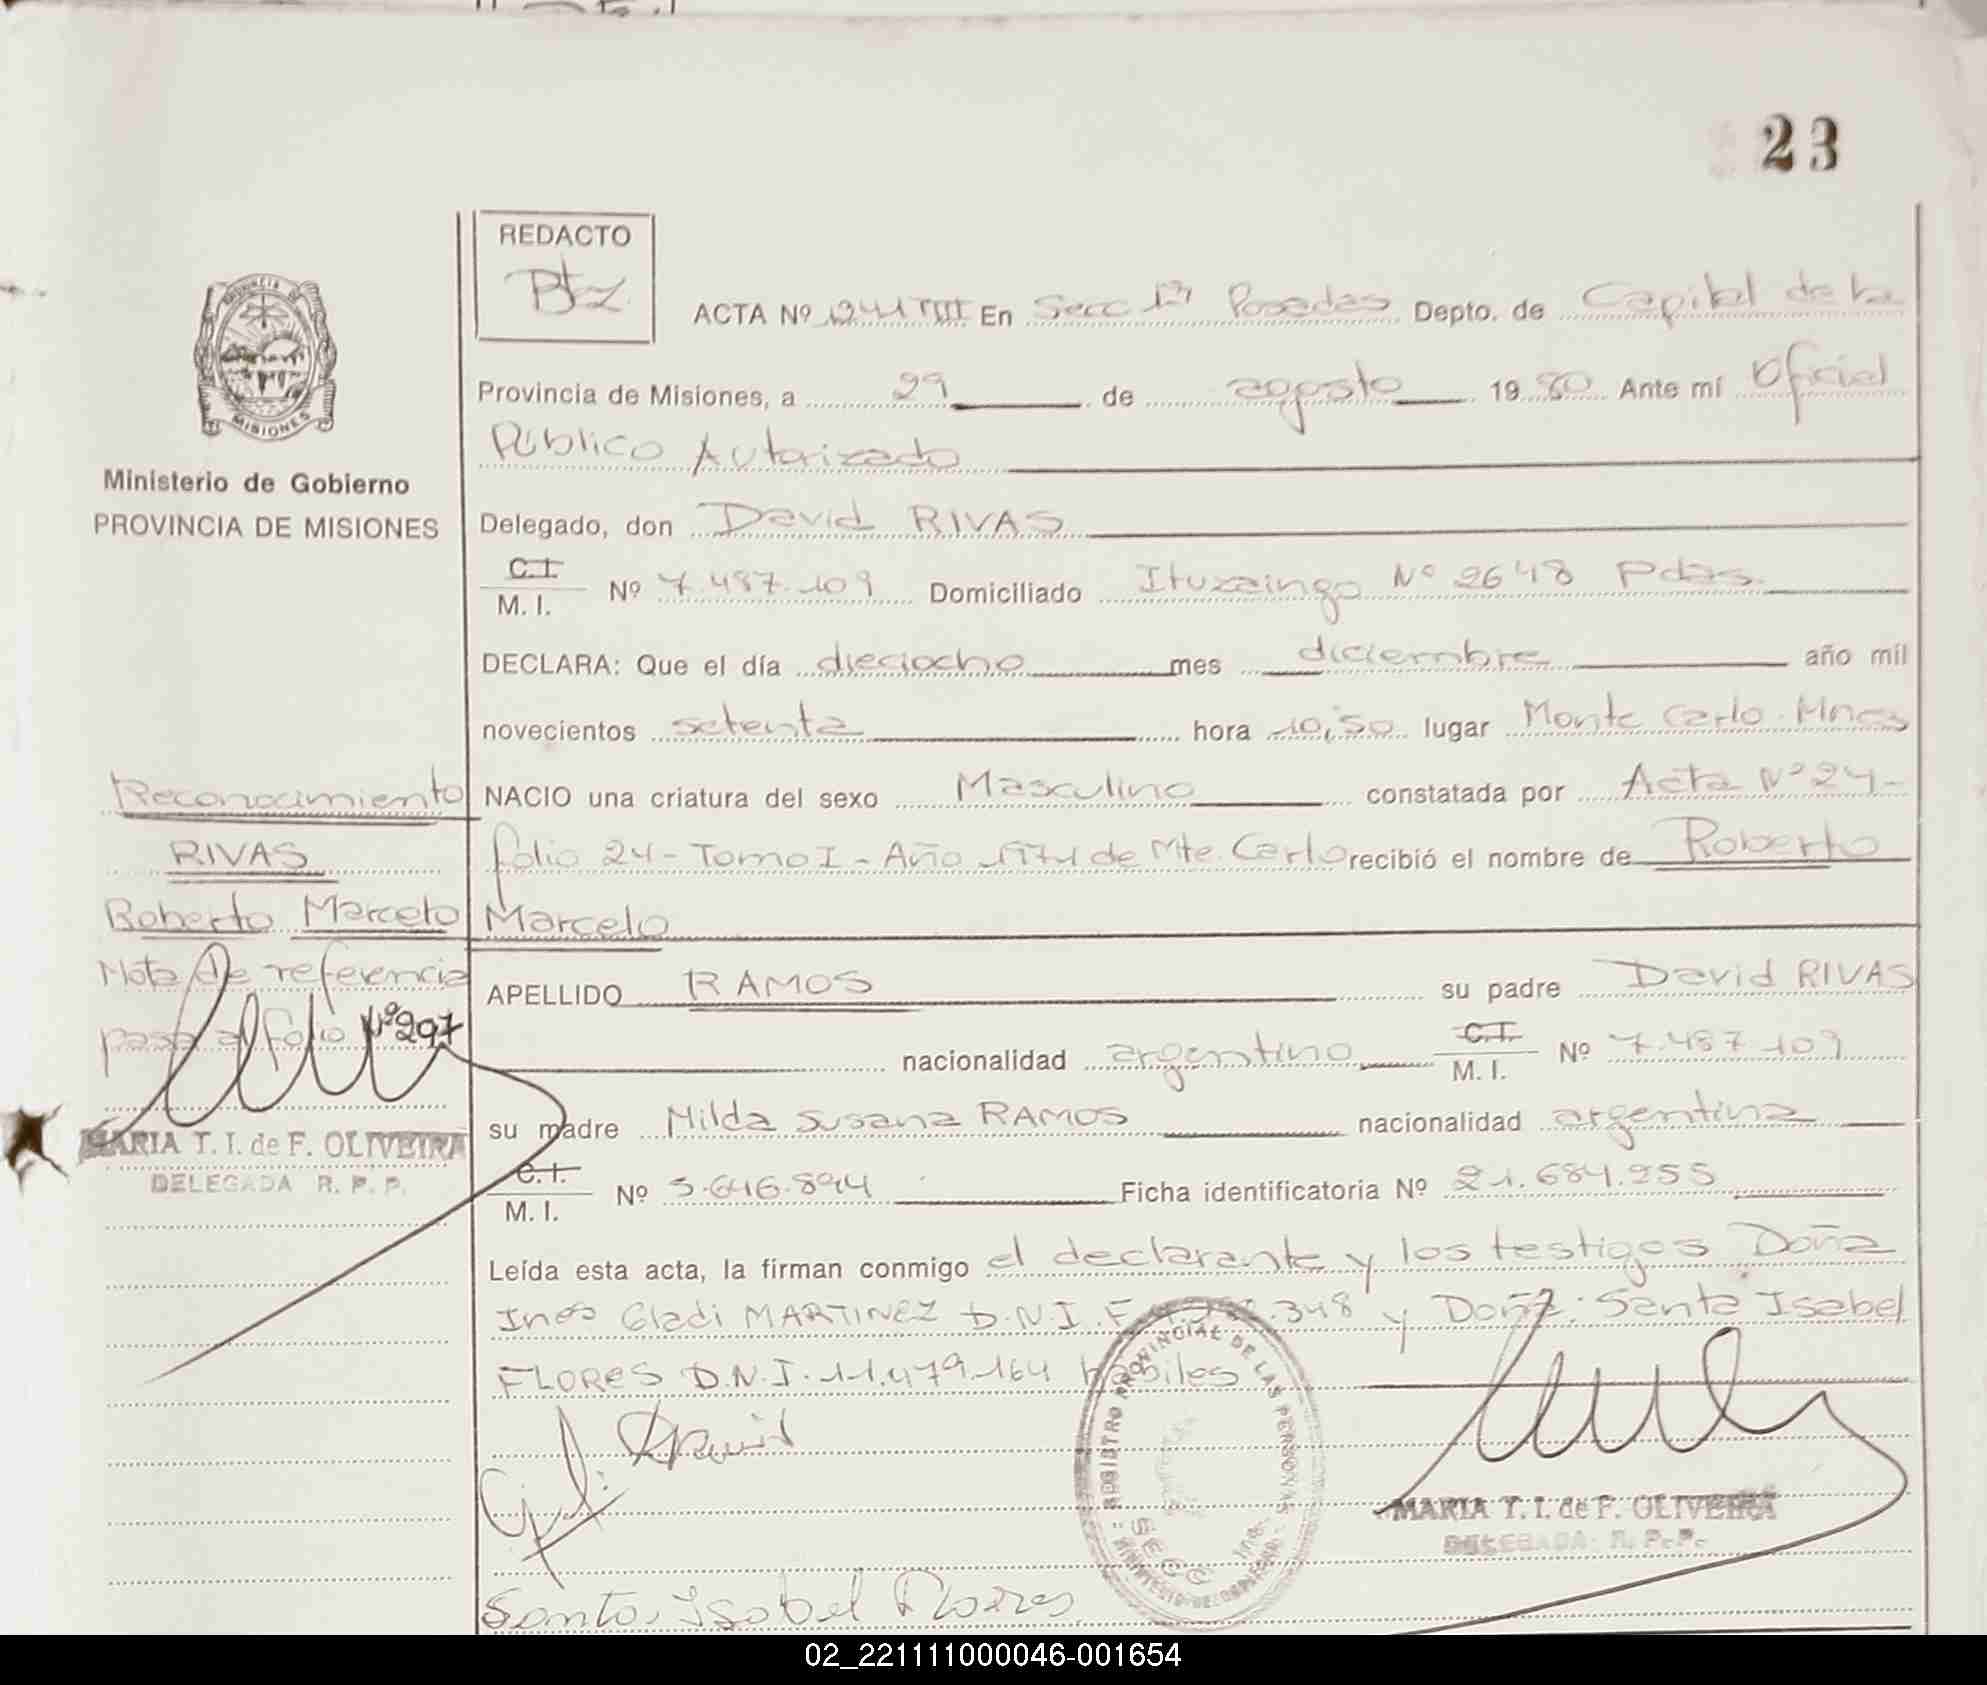 23
REDACTO
ACTA Nº 241 TIII En Secc 1ª Posadas Depto. de Capital de la
Provincia de Misiones, a 29 de agosto 1980 Ante mí Oficial
Público Autorizado
Ministerio de Gobierno
PROVINCIA DE MISIONES
Delegado, don David RIVAS
C.I.
M. I. Nº 7.487.109 Domiciliado Ituzaingo Nº 2648 Pdas.
DECLARA: Que el día dieciocho mes diciembre año mil
novecientos setenta hora 10,50 lugar Monte Carlo. Mnes
NACIO una criatura del sexo Masculino constatada por Acta Nº 24-
folio 24 - Tomo I - Año 1971 de Mte. Carlo recibió el nombre de Roberto
Marcelo
Reconocimiento
RIVAS
Roberto Marcelo
Nota de referencia
pasa al folio Nº 297
MARIA T. I. de F. OLIVEIRA
DELEGADA R. P. P.
APELLIDO RAMOS su padre David RIVAS
nacionalidad argentino C.I.
M. I. Nº 7.487.109
su madre Hilda Susana RAMOS nacionalidad argentina
C.I.
M. I. Nº 5.646.894 Ficha identificatoria Nº 21.684.255
Leída esta acta, la firman conmigo el declarante y los testigos Doña
Ines Gladi MARTINEZ D.N.I. F .348 y Doña: Santa Isabel
FLORES D.N.I. 11.479.164 habiles
REGISTRO PROVINCIAL DE LAS PERSONAS
MINISTERIO DE GOBIERNO
SECC. 1ra.
MARIA T. I. de F. OLIVEIRA
DELEGADA R. P. P.
Santa Isabel Flores
02_221111000046-001654